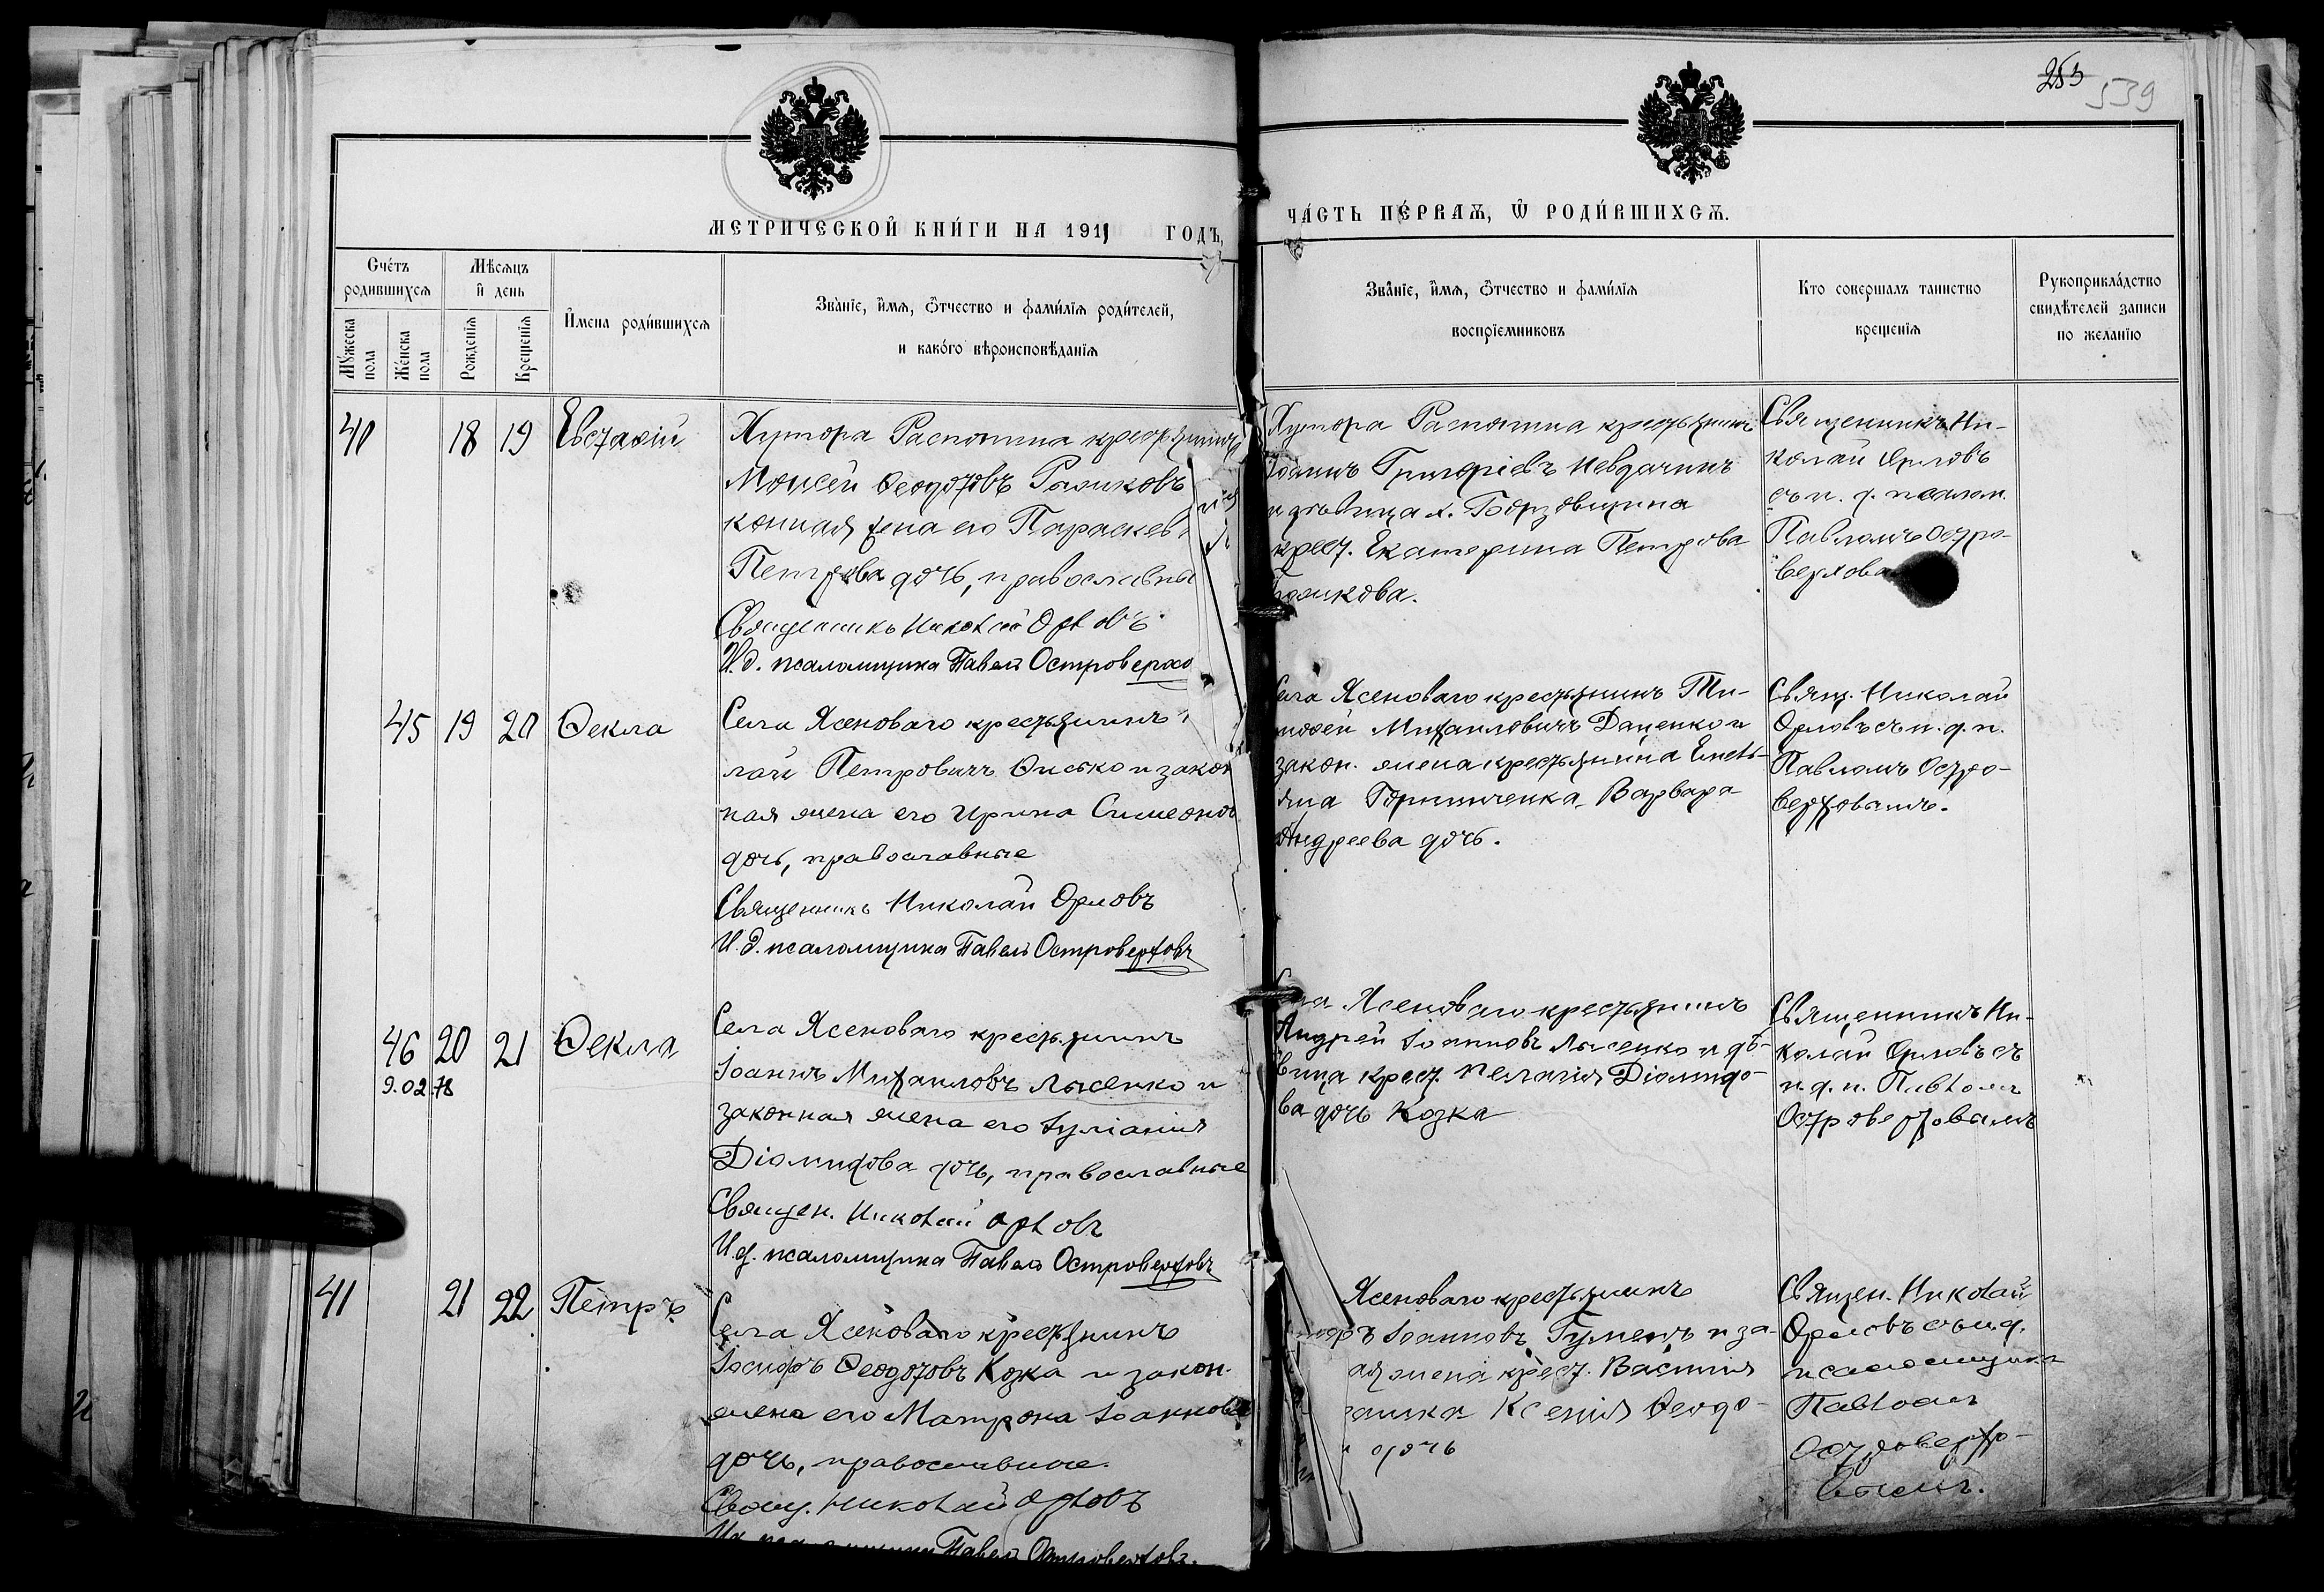 253
539
МЕТРИЧЕСКОЙ КНИ́ГИ НА 1911 ГОДЪ,
ЧА́СТЬ ПЕ́РВАѦ, Ѽ РОДИ́ВШИХСѦ.
Сче́тъ родившихсѧ
Мѣсѧцъ и҆ день
Му́жеска пола
Же́нска пола
Рожденїѧ
Крещенїѧ
И҆мена роди́вшихсѧ
Зва́нїе, и҆мѧ, ѻ҆́тчество и фами́лїѧ роди́телей,
и како́го вѣроисповѣ́данїѧ
Зва́нїе, и҆мѧ, ѻ҆́тчество и фами́лїѧ
воспрїемниковъ
Кто совершалъ таинство
крещенїѧ
Рукоприкла́дство
свидѣтелей записи
по желанїю
40 18 19 Евстафій
Хутора Распотина крестьянинъ
Моисей Ѳеодотовъ
конная жена его Параскев
Петрова дочь, православны
Священникъ Николай Орловъ
И. д. псаломщика Павелъ Островерхо
Хутора Распотина крестьянинъ
Іоаннъ Григоріевъ Невдачинъ
и дѣвица х.
крест. Екатерина Петрова
Священникъ Ни-
колай Орловъ
съ и. д. псалом.
Павломъ Остро-
верхова
45 19 20 Ѳекла
Села Ясеноваго крестьянинъ
лай Петровичъ Онысько и закон
ная жена его Ирина Симеонов
дочь, православные
Священникъ Николай Орловъ
И. д. псаломщика Павелъ Островерховъ
Села Ясеноваго крестьянинъ Ти-
моѳей Михаиловичъ Даценко и
закон. жена крестьянина Емель-
яна Варвара
Андреева дочь.
Свящ. Николай
Орловъ съ и. д. п.
Павломъ Остро-
верховымъ.
46 20 21 Ѳекла
9.02.78
Села Ясеноваго крестьянинъ
Іоаннъ Михаиловъ Лысенко и
законная жена его Іуліанія
Діомидова дочь, православные
Священ. Николай Орловъ
И. д. псаломщика Павелъ Островерховъ
Села Ясеноваго крестьянинъ
Андрей Іоанновъ Лысенко и дѣ-
вица крест. Пелагія Діомидо-
ва дочь Козка
Священникъ Ни-
колай Орловъ съ
и. д. п. Павломъ
Островерховымъ
41 21 22 Петръ
Села Ясеноваго крестьянинъ
Іосифъ Ѳеодотовъ Козка и закон.
жена его Матрона Іоаннова
дочь, православные.
Свящ. Николай Орловъ
Павелъ Островерховъ.
Ясеноваго крестьянинъ
Іоанновъ Гуменъ и за-
ая жена крест. Василія
Ксенія Ѳеодо-
дочь
Священ. Николай
Орловъ съ и. д.
псаломщика
Павломъ
Островерхо-
вымъ.